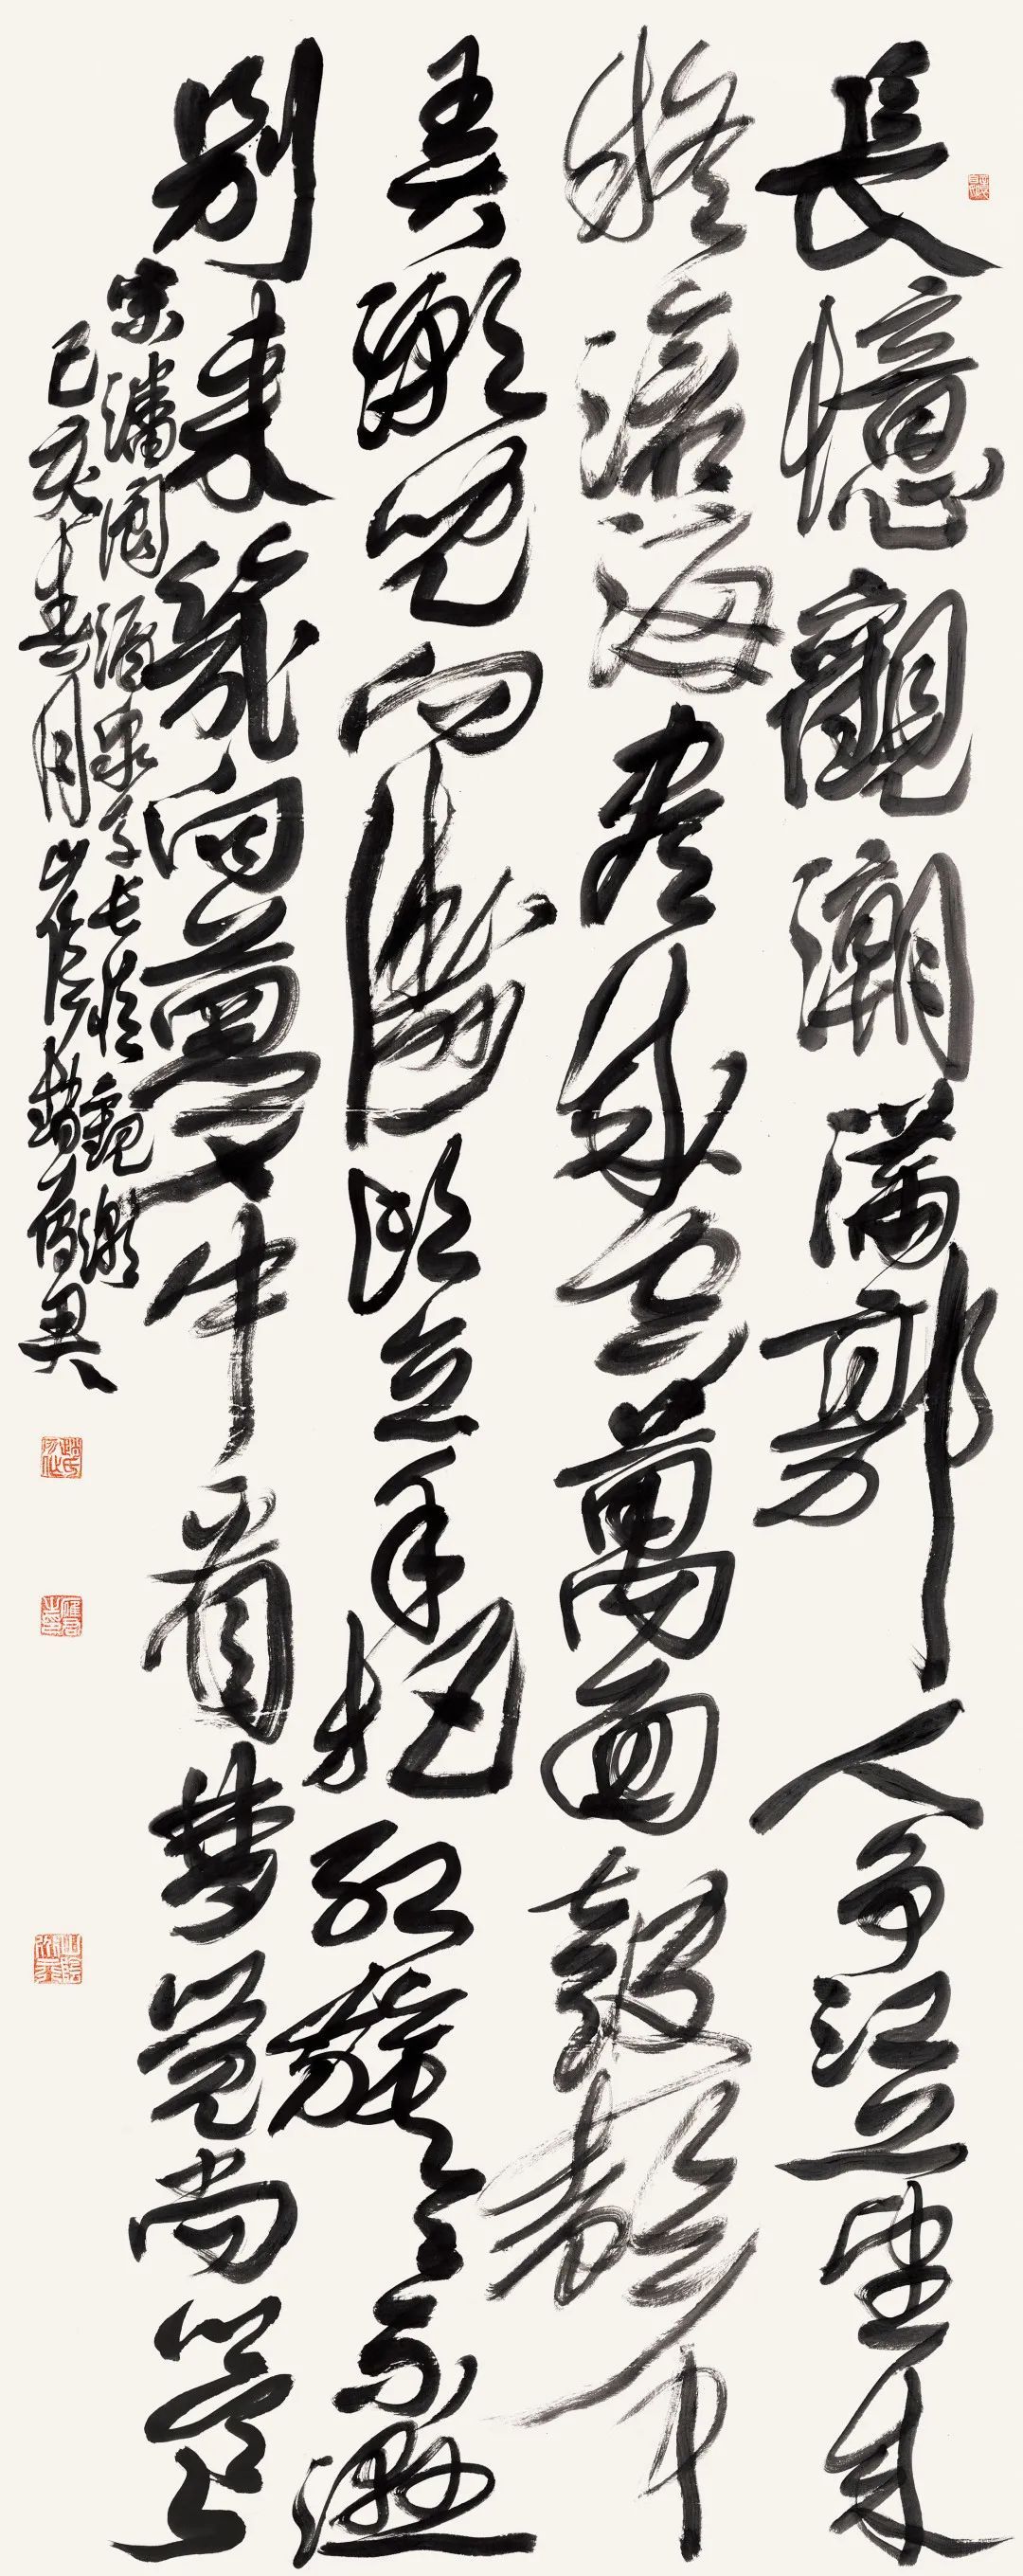 長憶觀潮滿郭人爭江上望來
疑滄海盡成空萬面鼓聲中
弄潮兒向濤頭立手把紅旗々不濕
別來幾向夢中看夢覺尚心寒
宋潘閬酒泉子長憶觀潮
己亥春月山陰趙雁君